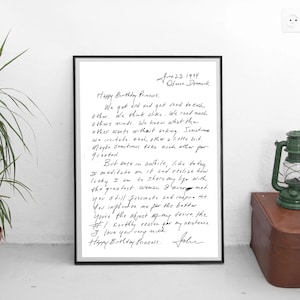 June 23 1994
Odense, Denmark.
Happy Birthday Princess.
We get old and get used to each
other. We think alike. We read each
others minds. We know what the
other wants without asking. Sometimes
we irritate each other a little bit.
Maybe sometimes take each other for
granted.
But once in awhile, like today
I meditate on it and realize how
lucky I am to share my life with
the greatest woman I ever met.
You still fascinate and inspire me.
You influence me for the better.
You're the object of my desire, the
#1 Earthly reason for my existence.
I love you very much.
Happy Birthday Princess.
John